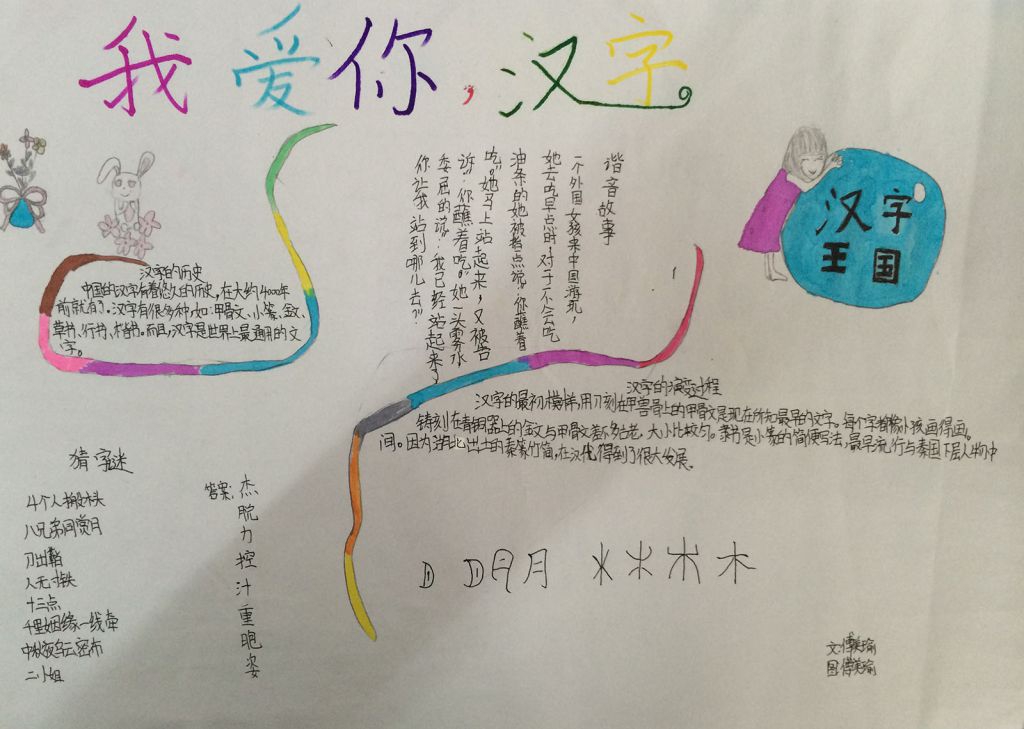 我爱你,汉字
汉字的历史
中国的汉字有着悠久的历史,在大约4000年
前就有了。汉字有很多种,如:甲骨文、小篆、金文、
草书、行书、楷书。而且,汉字是世界上最通用的文
字。
谐音故事
一个外国女孩来中国游玩,
她去吃早点时,对于一个会吃
油条的她被档点说:“你蘸着
吃。”她马上站起来,又被告
诉:“你蘸着吃。”她一头雾水
委屈的说:“我已经站起来了
你让我站到哪儿去?”
汉字
王国
汉字的演变过程
汉字的最初模样,用刀刻在甲兽骨上的甲骨文是现在所知最早的文字。每个字都像小孩画得画。
铸刻在青铜器上的金文与甲骨文差不多古老,大小比较匀。隶书是小篆的简便写法,最早流行与秦国下层人物中
间。因为湖北出土的秦篆竹简,在汉代得到了很大发展。
猜字谜
4个人搬木头
八兄弟同赏月
刀出鞘
人无寸铁
十三点
千里姻缘一线牵
中秋夜乌云密布
二小姐
答案:杰
脱
力
控
汁
重
皰
姿
D D月月 木木木木
文傅美瑜
图傅美瑜